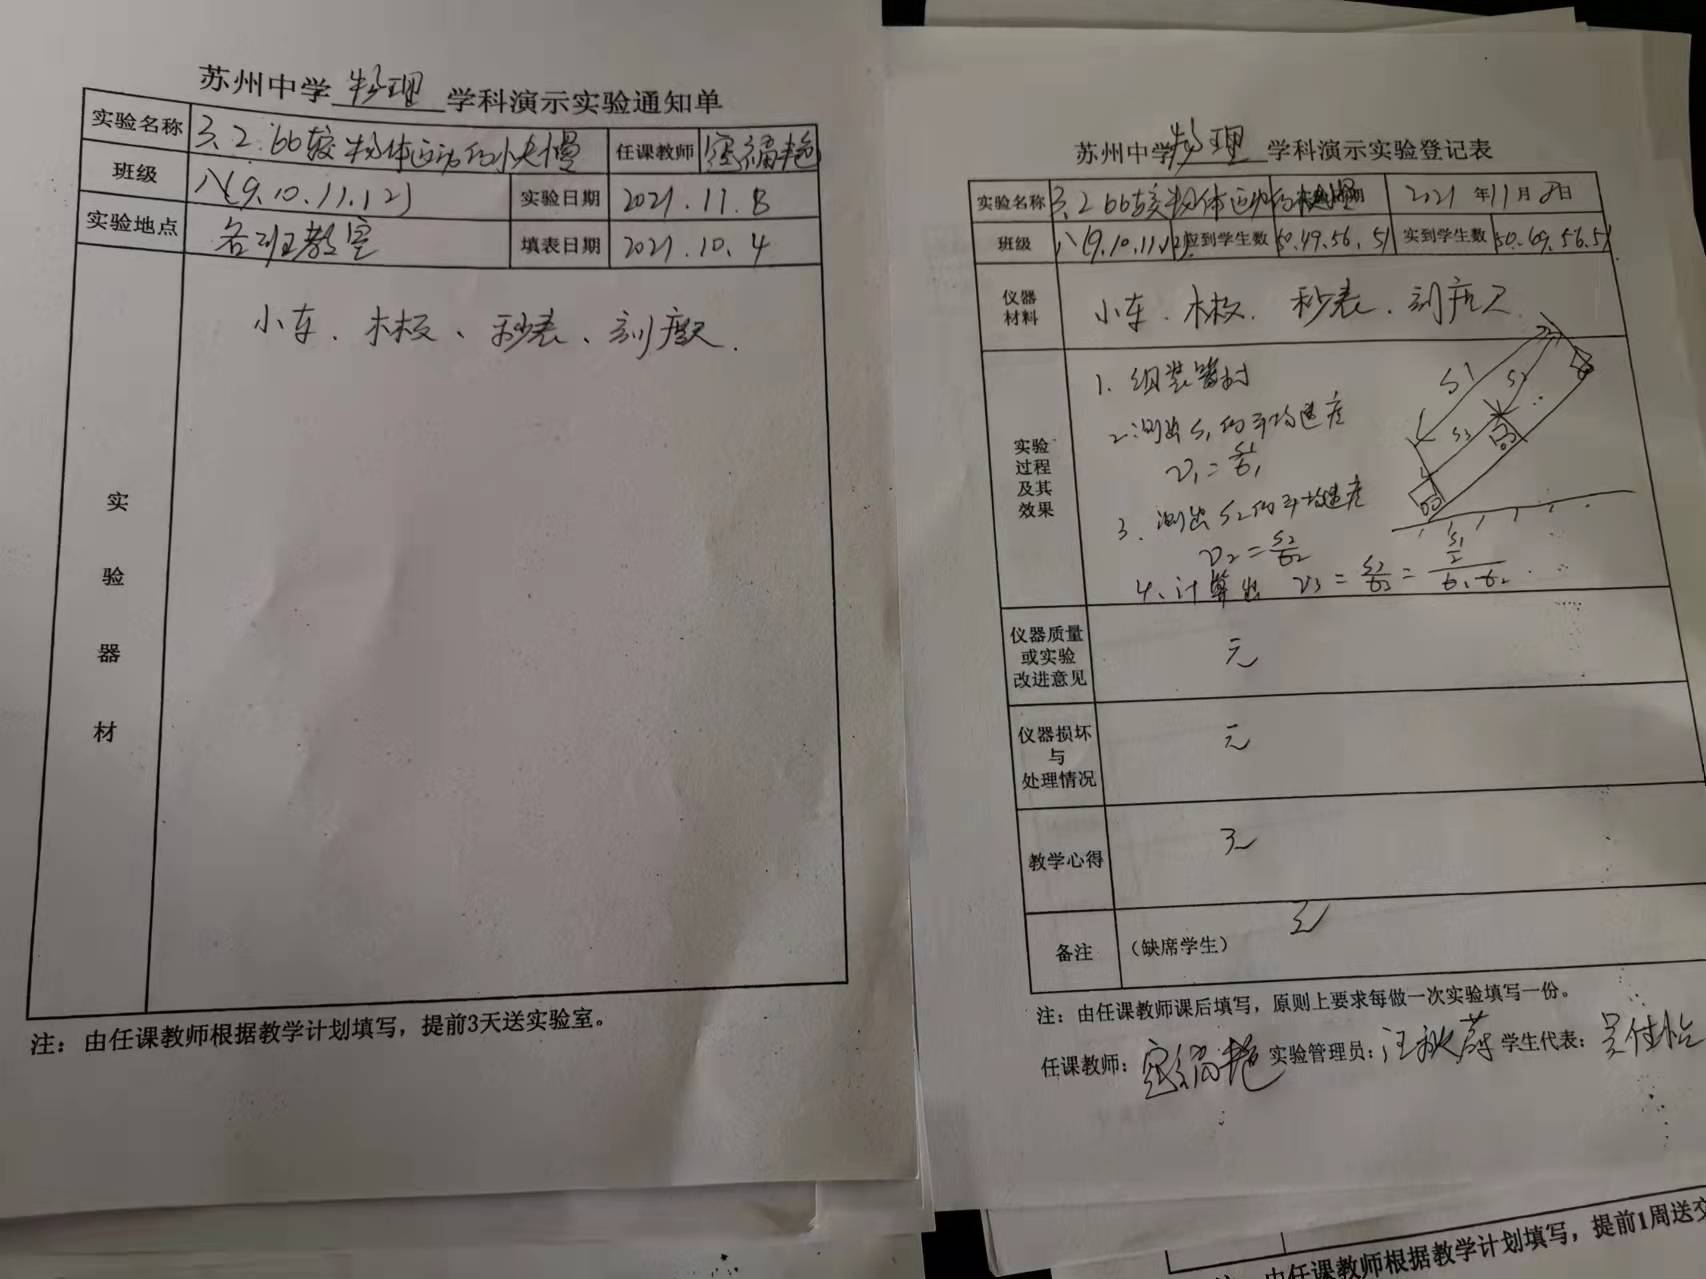 苏州中学物理学科演示实验通知单
实验名称 3.2.比较物体运动的快慢 任课教师
班级 八(9.10.11.12) 实验日期 2021.11.8
实验地点 各班教室 填表日期 2021.10.4
实验器材
小车、木板、秒表、刻度尺.
注：由任课教师根据教学计划填写，提前3天送实验室。
苏州中学物理学科演示实验登记表
实验名称 3.2比较物体运动的快慢 2021年11月8日
班级 八(9.10.11.12) 应到学生数 50.49.56.51 实到学生数 50.49.56.51
仪器材料 小车.木板.秒表.刻度尺.
实验过程及其效果
1.组装器材
2.测出S1的平均速度
v1=S1/t1
3.测出S2的平均速度
v2=S2/t2
4、计算出 v3=S3/t3=(S1/2)/(t1-t2)
S1
S2
S3
仪器质量或实验改进意见 无
仪器损坏与处理情况 无
教学心得 无
备注（缺席学生） 无
注：由任课教师课后填写，原则上要求每做一次实验填写一份。
任课教师： 实验管理员：汪秋蔚 学生代表：吴佳怡
由任课教师根据教学计划填写，提前1周送交